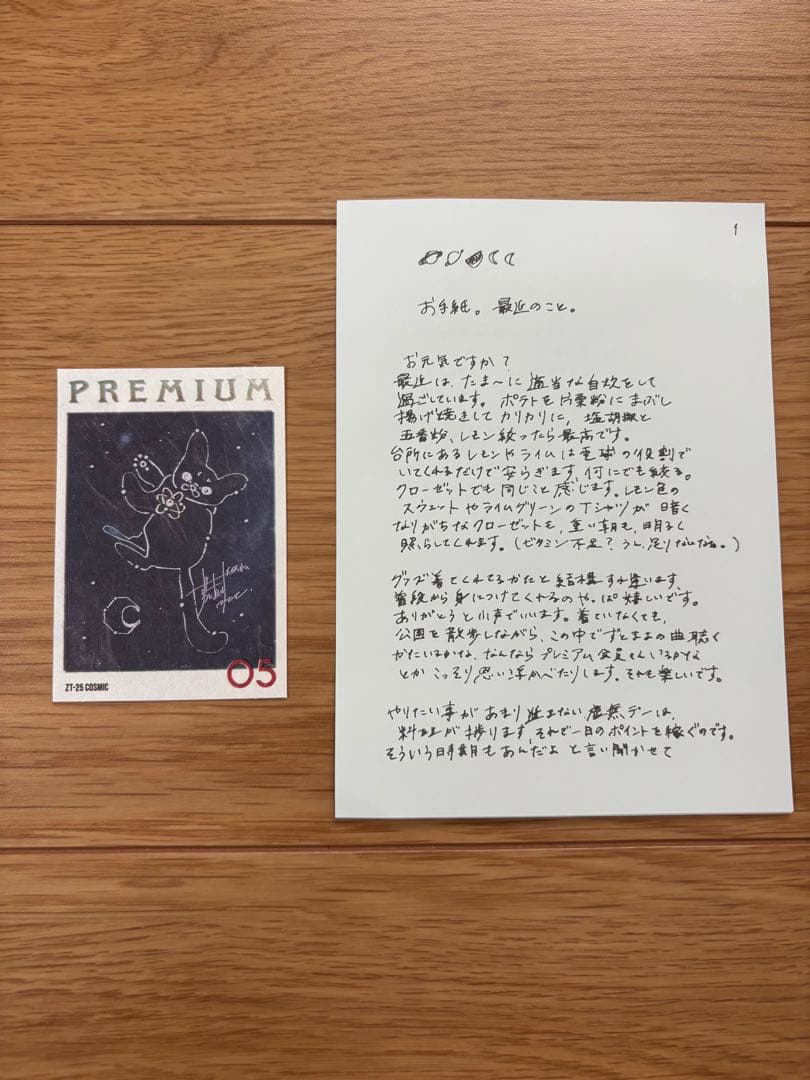 PREMIUM
ZT-25 COSMIC
05
1
お手紙。最近のこと。
お元気ですか?
最近は、たま〜に適当な自炊をして
過ごしています。ポテトを片栗粉にまぶし
揚げ焼きしてカリカリに、塩胡椒と
五香粉、レモン絞ったら最高です。
台所にあるレモンやライムは電球の役割で
いてくれるだけで安らぎます。何にでも絞る。
クローゼットでも同じこと感じます。レモン色の
スウェットやライムグリーンのTシャツが暗く
なりがちなクローゼットを、重い朝も、明るく
照らしてくれます。(ビタミン不足?うん、足りないだな。)
グッズ着てくれてるかたと結構すれ違います。
普段から身につけてくれるのやっぱ嬉しいです。
ありがとうと小声でいいます。着ていなくても、
公園を散歩しながら、この中でずとまよの曲聴く
かたいるかな、なんならプレミアム会員さんいるかな
とかこっそり思い浮かべたりします。それも楽しいです。
やりたい事があまり進まない虚無デーは、
料理が捗ります。それで一日のポイントを稼ぐのです。
そういう時期もあんだよ と言い聞かせて